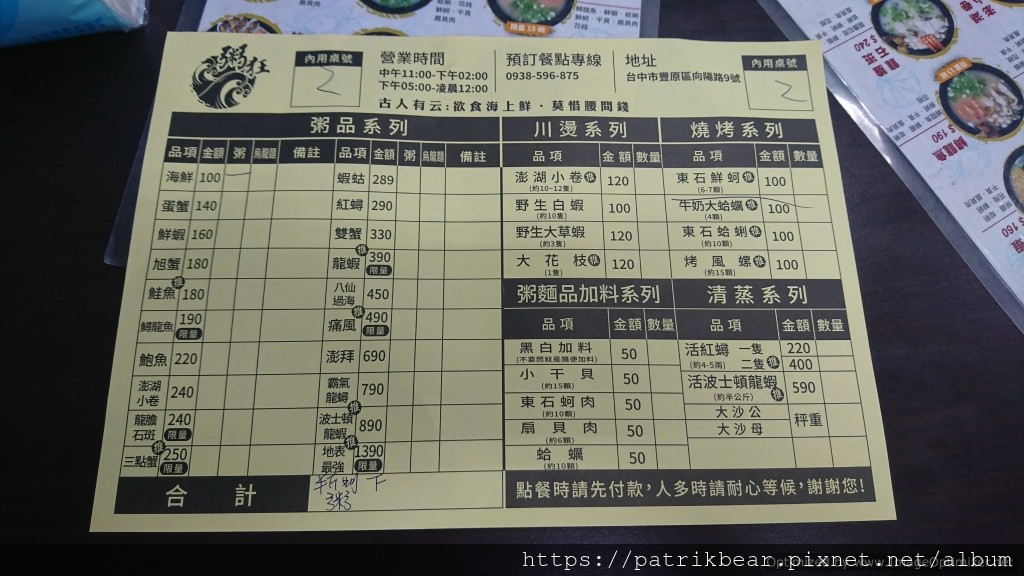 粥狂
內用桌號
2
營業時間
中午11:00-下午02:00
下午05:00-凌晨12:00
預訂餐點專線
0938-596-875
地址
台中市豐原區向陽路9號
內用桌號
2
古人有云:欲食海上鮮·莫惜腰間錢
粥品系列
品項 金額 粥 烏龍麵 備註 品項 金額 粥 烏龍麵 備註
海鮮 100 一 蝦蛄 289
蛋蟹 140 紅蟳 290
鮮蝦 160 雙蟹 330
旭蟹 180 龍蝦 推 390 限量
鮭魚 推 180 八仙過海 450
鱘龍魚 190 限量 痛風 推 490 限量
鮑魚 220 澎拜 690
澎湖小卷 240 霸氣龍蝦 790
龍膽石斑 240 限量 波士頓龍蝦 推 890
三點蟹 推 250 限量 地表最強 推 1390 限量
合計
川燙系列
品項 金額 數量
澎湖小卷 推 120
(約10~12隻)
野生白蝦 100
(約10隻)
野生大草蝦 120
(約3隻)
大花枝 推 120
(1隻)
燒烤系列
品項 金額 數量
東石鮮蚵 推 100
(6-7顆)
牛奶大蛤蠣 推 100
(4顆)
東石蛤蜊 推 100
(約10顆)
烤風螺 推 100
(約15顆)
粥麵品加料系列
品項 金額 數量
黑白加料 50
(不要問就是隨便加料)
小干貝 50
(約15顆)
東石蚵肉 50
(約10顆)
扇貝肉 50
(約6顆)
蛤蠣 50
(約10顆)
清蒸系列
品項 金額 數量
活紅蟳 一隻 220
(約4-5兩) 二隻 推 400
活波士頓龍蝦 推 590
(約半公斤)
大沙公 秤重
大沙母
點餐時請先付款,人多時請耐心等候,謝謝您!
$240
石斑
龍膽
$190
鱘龍魚
$160
限量15個
https://patrikbear.pixnet.net/album